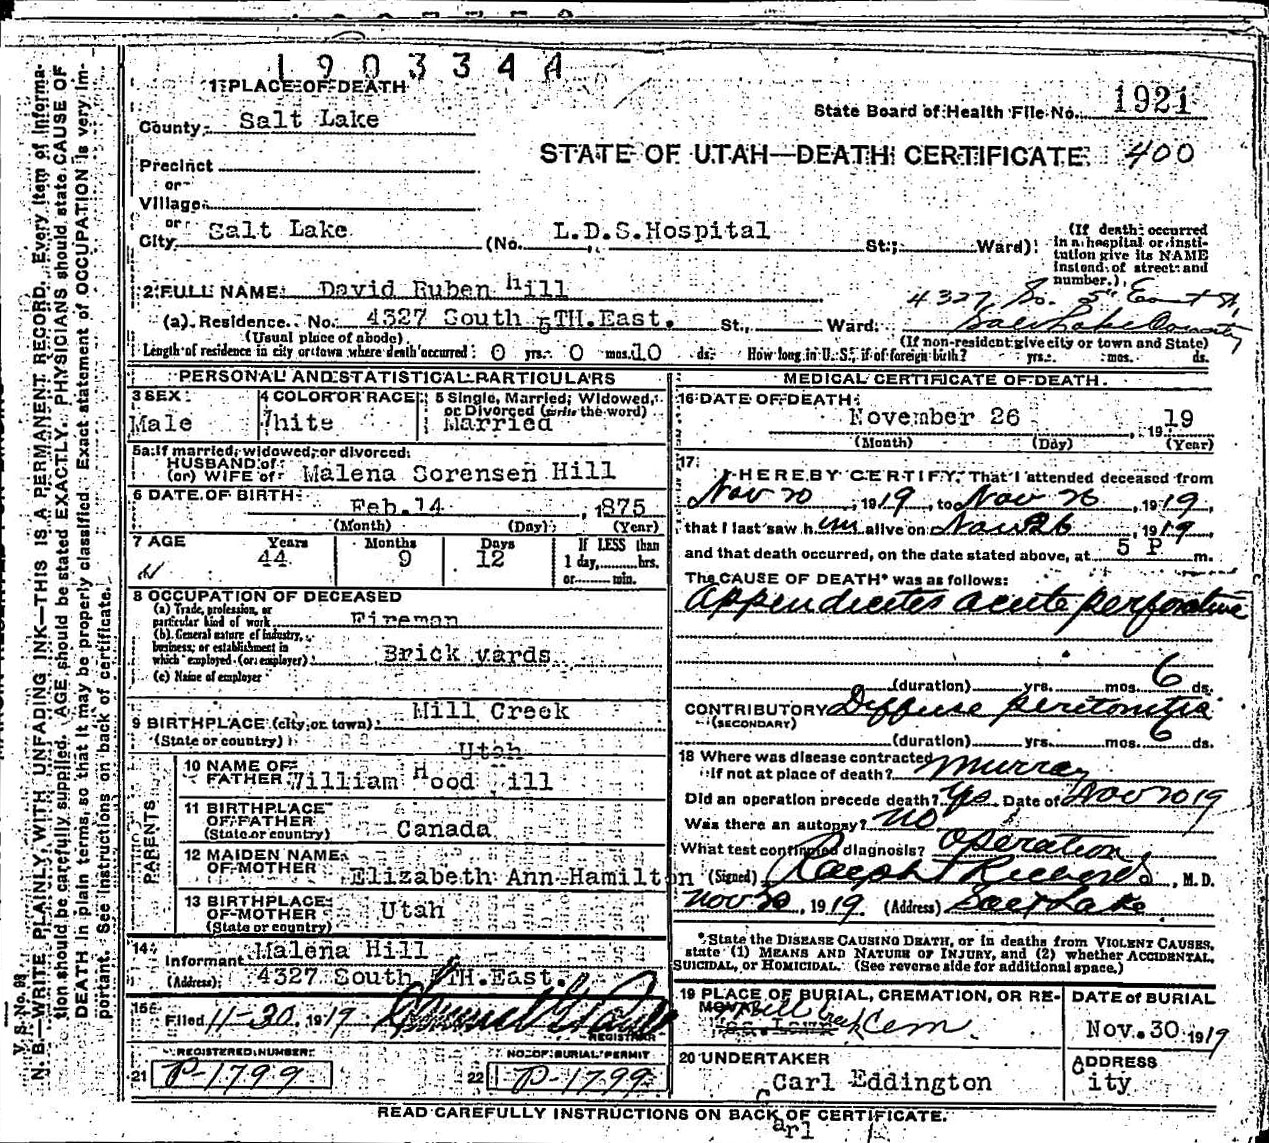 1903344
1 PLACE OF DEATH
State Board of Health File No. 1921
County Salt Lake
STATE OF UTAH—DEATH CERTIFICATE 400
Precinct
or
Village
or
City Salt Lake (No. L.D.S.Hospital St.; Ward)
(If death occurred in a hospital or institution give its NAME instead of street and number.)
2 FULL NAME David Ruben Hill
4327 So. 5" East St,
(a) Residence. No. 4327 South 5TH.East. St., Ward. Salt Lake County
(Usual place of abode) (If non-resident give city or town and State)
Length of residence in city or town where death occurred 0 yrs. 0 mos. 10 ds. How long in U.S., if of foreign birth? yrs. mos. ds.
PERSONAL AND STATISTICAL PARTICULARS
3 SEX Male
4 COLOR OR RACE White
5 Single, Married, Widowed, or Divorced (write the word) Married
5a If married, widowed, or divorced
HUSBAND of
(or) WIFE of Malena Sorensen Hill
6 DATE OF BIRTH Feb.14, 1875
(Month) (Day) (Year)
7 AGE Years 44 Months 9 Days 12
If LESS than 1 day, hrs. or min.
8 OCCUPATION OF DECEASED
(a) Trade, profession, or particular kind of work Fireman
(b) General nature of industry, business, or establishment in which employed (or employer) Brick yards
(c) Name of employer
9 BIRTHPLACE (city or town) Mill Creek
(State or country) Utah
PARENTS
10 NAME OF FATHER William Hood Hill
11 BIRTHPLACE OF FATHER (State or country) Canada
12 MAIDEN NAME OF MOTHER Elizabeth Ann Hamilton
13 BIRTHPLACE OF MOTHER (State or country) Utah
14 Informant Malena Hill
(Address) 4327 South 5TH.East.
15 Filed 11-30, 1919
REGISTRAR
REGISTERED NUMBER
21 P-1799
NO. OF BURIAL PERMIT
22 P-1799
MEDICAL CERTIFICATE OF DEATH
16 DATE OF DEATH
November 26, 1919
(Month) (Day) (Year)
17 I HEREBY CERTIFY, That I attended deceased from
Nov 20, 1919, to Nov 26, 1919,
that I last saw him alive on Nov 26, 1919
and that death occurred, on the date stated above, at 5 P m.
The CAUSE OF DEATH* was as follows:
Appendicites acute perforative
(duration) yrs. mos. 6 ds.
CONTRIBUTORY Diffuse peritonitis
(SECONDARY)
(duration) yrs. mos. 6 ds.
18 Where was disease contracted
if not at place of death? Murray
Did an operation precede death? Yes Date of Nov 20 19
Was there an autopsy? No
What test confirmed diagnosis? Operation
(Signed) Ralph T Richards, M.D.
Nov 30, 1919 (Address) Salt Lake
*State the DISEASE CAUSING DEATH, or in deaths from VIOLENT CAUSES,
state (1) MEANS AND NATURE OF INJURY, and (2) whether ACCIDENTAL,
SUICIDAL, or HOMICIDAL. (See reverse side for additional space.)
19 PLACE OF BURIAL, CREMATION, OR REMOVAL
Cem
DATE of BURIAL
Nov. 30 1919
20 UNDERTAKER
Carl Eddington
ADDRESS
City
READ CAREFULLY INSTRUCTIONS ON BACK OF CERTIFICATE.
arl
V. S. No. 98
N. B.—WRITE PLAINLY, WITH UNFADING INK—THIS IS A PERMANENT RECORD. Every item of informa-
tion should be carefully supplied. AGE should be stated EXACTLY. PHYSICIANS should state CAUSE OF
DEATH in plain terms, so that it may be properly classified. Exact statement of OCCUPATION is very im-
portant. See instructions on back of certificate.